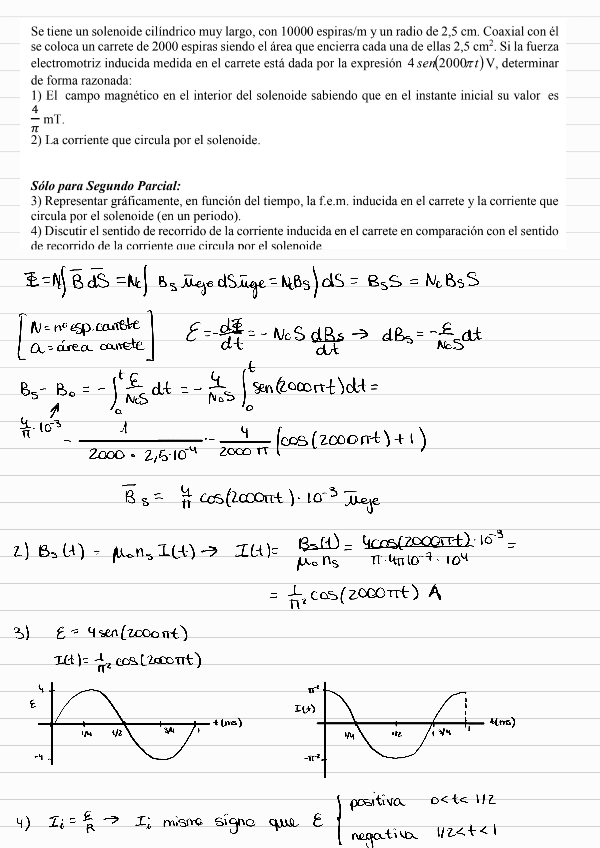 Se tiene un solenoide cilíndrico muy largo, con 10000 espiras/m y un radio de 2,5 cm. Coaxial con él
se coloca un carrete de 2000 espiras siendo el área que encierra cada una de ellas 2,5 cm². Si la fuerza
electromotriz inducida medida en el carrete está dada por la expresión 4 sen(2000π t) V, determinar
de forma razonada:
1) El campo magnético en el interior del solenoide sabiendo que en el instante inicial su valor es
4/π mT.
2) La corriente que circula por el solenoide.
Sólo para Segundo Parcial:
3) Representar gráficamente, en función del tiempo, la f.e.m. inducida en el carrete y la corriente que
circula por el solenoide (en un periodo).
4) Discutir el sentido de recorrido de la corriente inducida en el carrete en comparación con el sentido
de recorrido de la corriente que circula por el solenoide
Φ = N∫ B̄ dS̄ = Nc∫ Bs ūeje dS ūeje = NcBs ∫dS = BsS = Nc Bs S
[N = nº esp. carrete
a = área carrete]
ε = -dΦ/dt = - Nc S dBs/dt → dBs = -ε/NcS dt
Bs - B0 = -∫₀ᵗ ε/NcS dt = - 4/NcS ∫₀ᵗ sen(2000πt)dt =
4/π · 10⁻³
- 1/2000 · 2,5·10⁻⁴ · - 4/2000 π (cos(2000πt)+1)
B̄s = 4/π cos(2000πt) · 10⁻³ ūeje
2) Bs(t) = μ0 ns I(t) → I(t) = Bs(t)/μ0 ns = 4cos(2000πt)·10⁻³/π·4π10⁻⁷·10⁴ =
= 1/π² cos(2000πt) A
3) ε = 4 sen(2000πt)
I(t) = 1/π² cos(2000πt)
4
ε
-4
1/4
1/2
3/4
1
t(ms)
π⁻²
I(t)
-π⁻²
1/4
1/2
3/4
t(ms)
4) Ii = ε/R → Ii mismo signo que ε { positiva 0<t<1/2
negativa 1/2<t<1